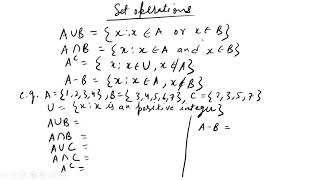 Set operations
A∪B = {x : x ∈ A or x ∈ B}
A∩B = {x : x ∈ A and x ∈ B}
Aᶜ = {x : x ∈ U, x ∉ A}
A-B = {x : x ∈ A, x ∉ B}
e.g. A = {1,2,3,4}, B = {3,4,5,6,7}, C = {2,3,5,7}
U = {x : x is an positive integer}
A∪B =
A∩B =
A∪C =
A∩C =
Aᶜ =
A-B =